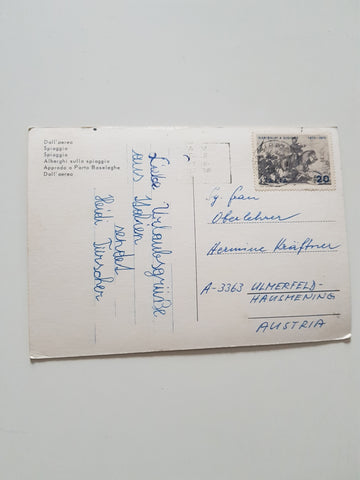 Dall'aereo
Spiaggia
Spiaggia
Alberghi sulla spiaggia
Approdo a Porto Baseleghe
Dall'aereo
Liebe Urlaubsgrüße
aus Italien
sendet
Heidi Türscher
20
Sg. Frau
Oberlehrer
Hermine Kräftner
A-3363 ULMERFELD-
HAUSMENING
AUSTRIA